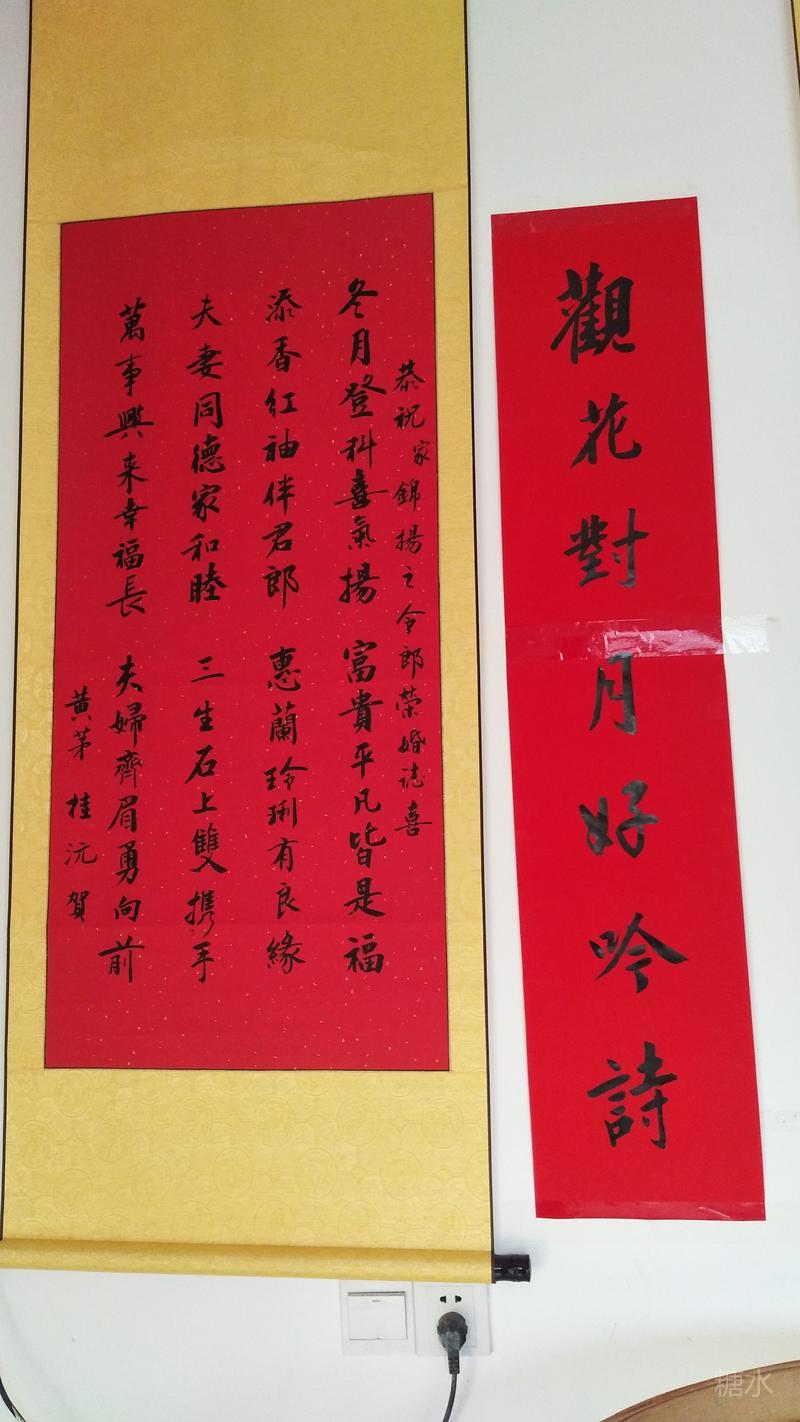 觀花對月好吟詩
恭祝家錦揚之令郎榮婚誌喜
冬月登科喜氣揚 富貴平凡皆是福
添香红袖伴君郎 惠蘭玲琍有良緣
夫妻同德家和睦 三生石上雙携手
萬事興来幸福長 夫婦齊眉勇向前
黄茅 桂沅賀
糖水